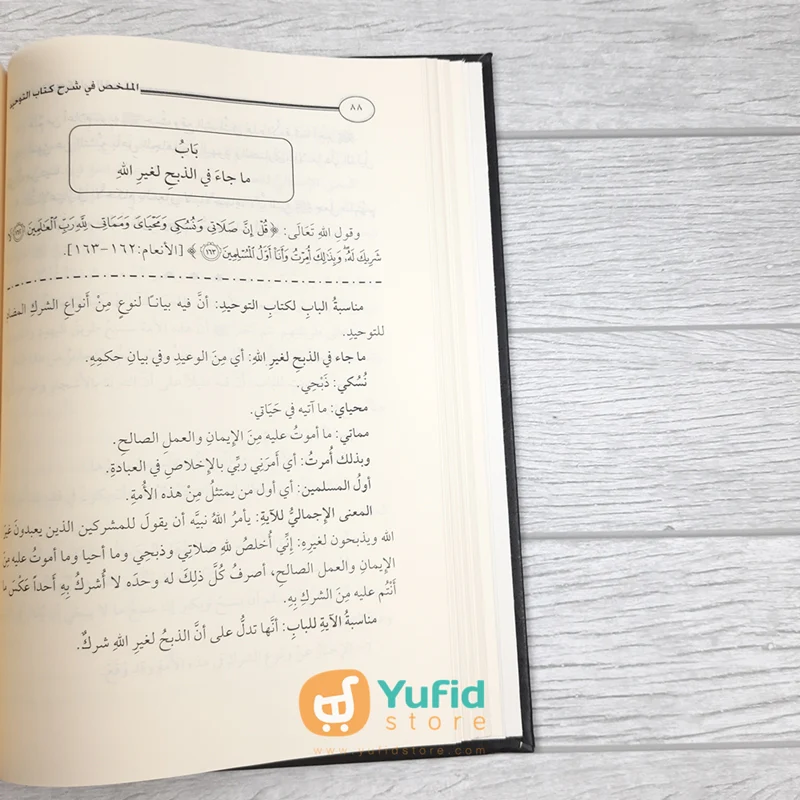 الملخص في شرح كتاب التوحيد
٨٨
بَابُ
ما جاءَ في الذبحِ لغيرِ اللهِ
وقولِ اللهِ تَعَالَى: ﴿قُلْ إِنَّ صَلَاتِي وَنُسُكِي وَمَحْيَايَ وَمَمَاتِي لِلَّهِ رَبِّ الْعَالَمِينَ ﴿١٦٢﴾ لَا
شَرِيكَ لَهُ وَبِذَلِكَ أُمِرْتُ وَأَنَا أَوَّلُ الْمُسْلِمِينَ ﴿١٦٣﴾﴾ [الأنعام:١٦٢-١٦٣].
مناسبةُ البابِ لكتابِ التوحيدِ: أنَّ فيه بيانًا لنوعٍ مِنْ أنواعِ الشركِ
للتوحيدِ.
ما جاء في الذبحِ لغيرِ اللهِ: أي مِنَ الوعيدِ وفي بيانِ حكمِهِ.
نُسُكي: ذَبْحِي.
محياي: ما آتيه في حَيَاتي.
مماتي: ما أموتُ عليه مِنَ الإيمانِ والعملِ الصالحِ.
وبذلك أُمرتُ: أي أَمرَني ربِّي بالإخلاصِ في العبادةِ.
أولُ المسلمين: أي أول من يمتثلُ مِنْ هذه الأُمةِ.
المعنى الإجماليُّ للآيةِ: يأمرُ اللهُ نبيَّه أن يقولَ للمشركين الذين يعبدونَ غيرَ
الله ويذبحون لغيرِهِ: إنِّي أُخلصُ للهِ صلاتي وذبحي وما أحيا وما أموتُ عليه مِنَ
الإيمانِ والعملِ الصالحِ، أصرفُ كُلَّ ذلِكَ له وحدَه لا أُشركُ بِهِ أَحداً عَكْسَ ما
أَنْتُم عليه مِنَ الشركِ بِهِ.
مناسبةُ الآيةِ للبابِ: أنَّها تدلُّ على أنَّ الذبحُ لغيرِ اللهِ شركٌ.
Yufid
store
www.yufidstore.com